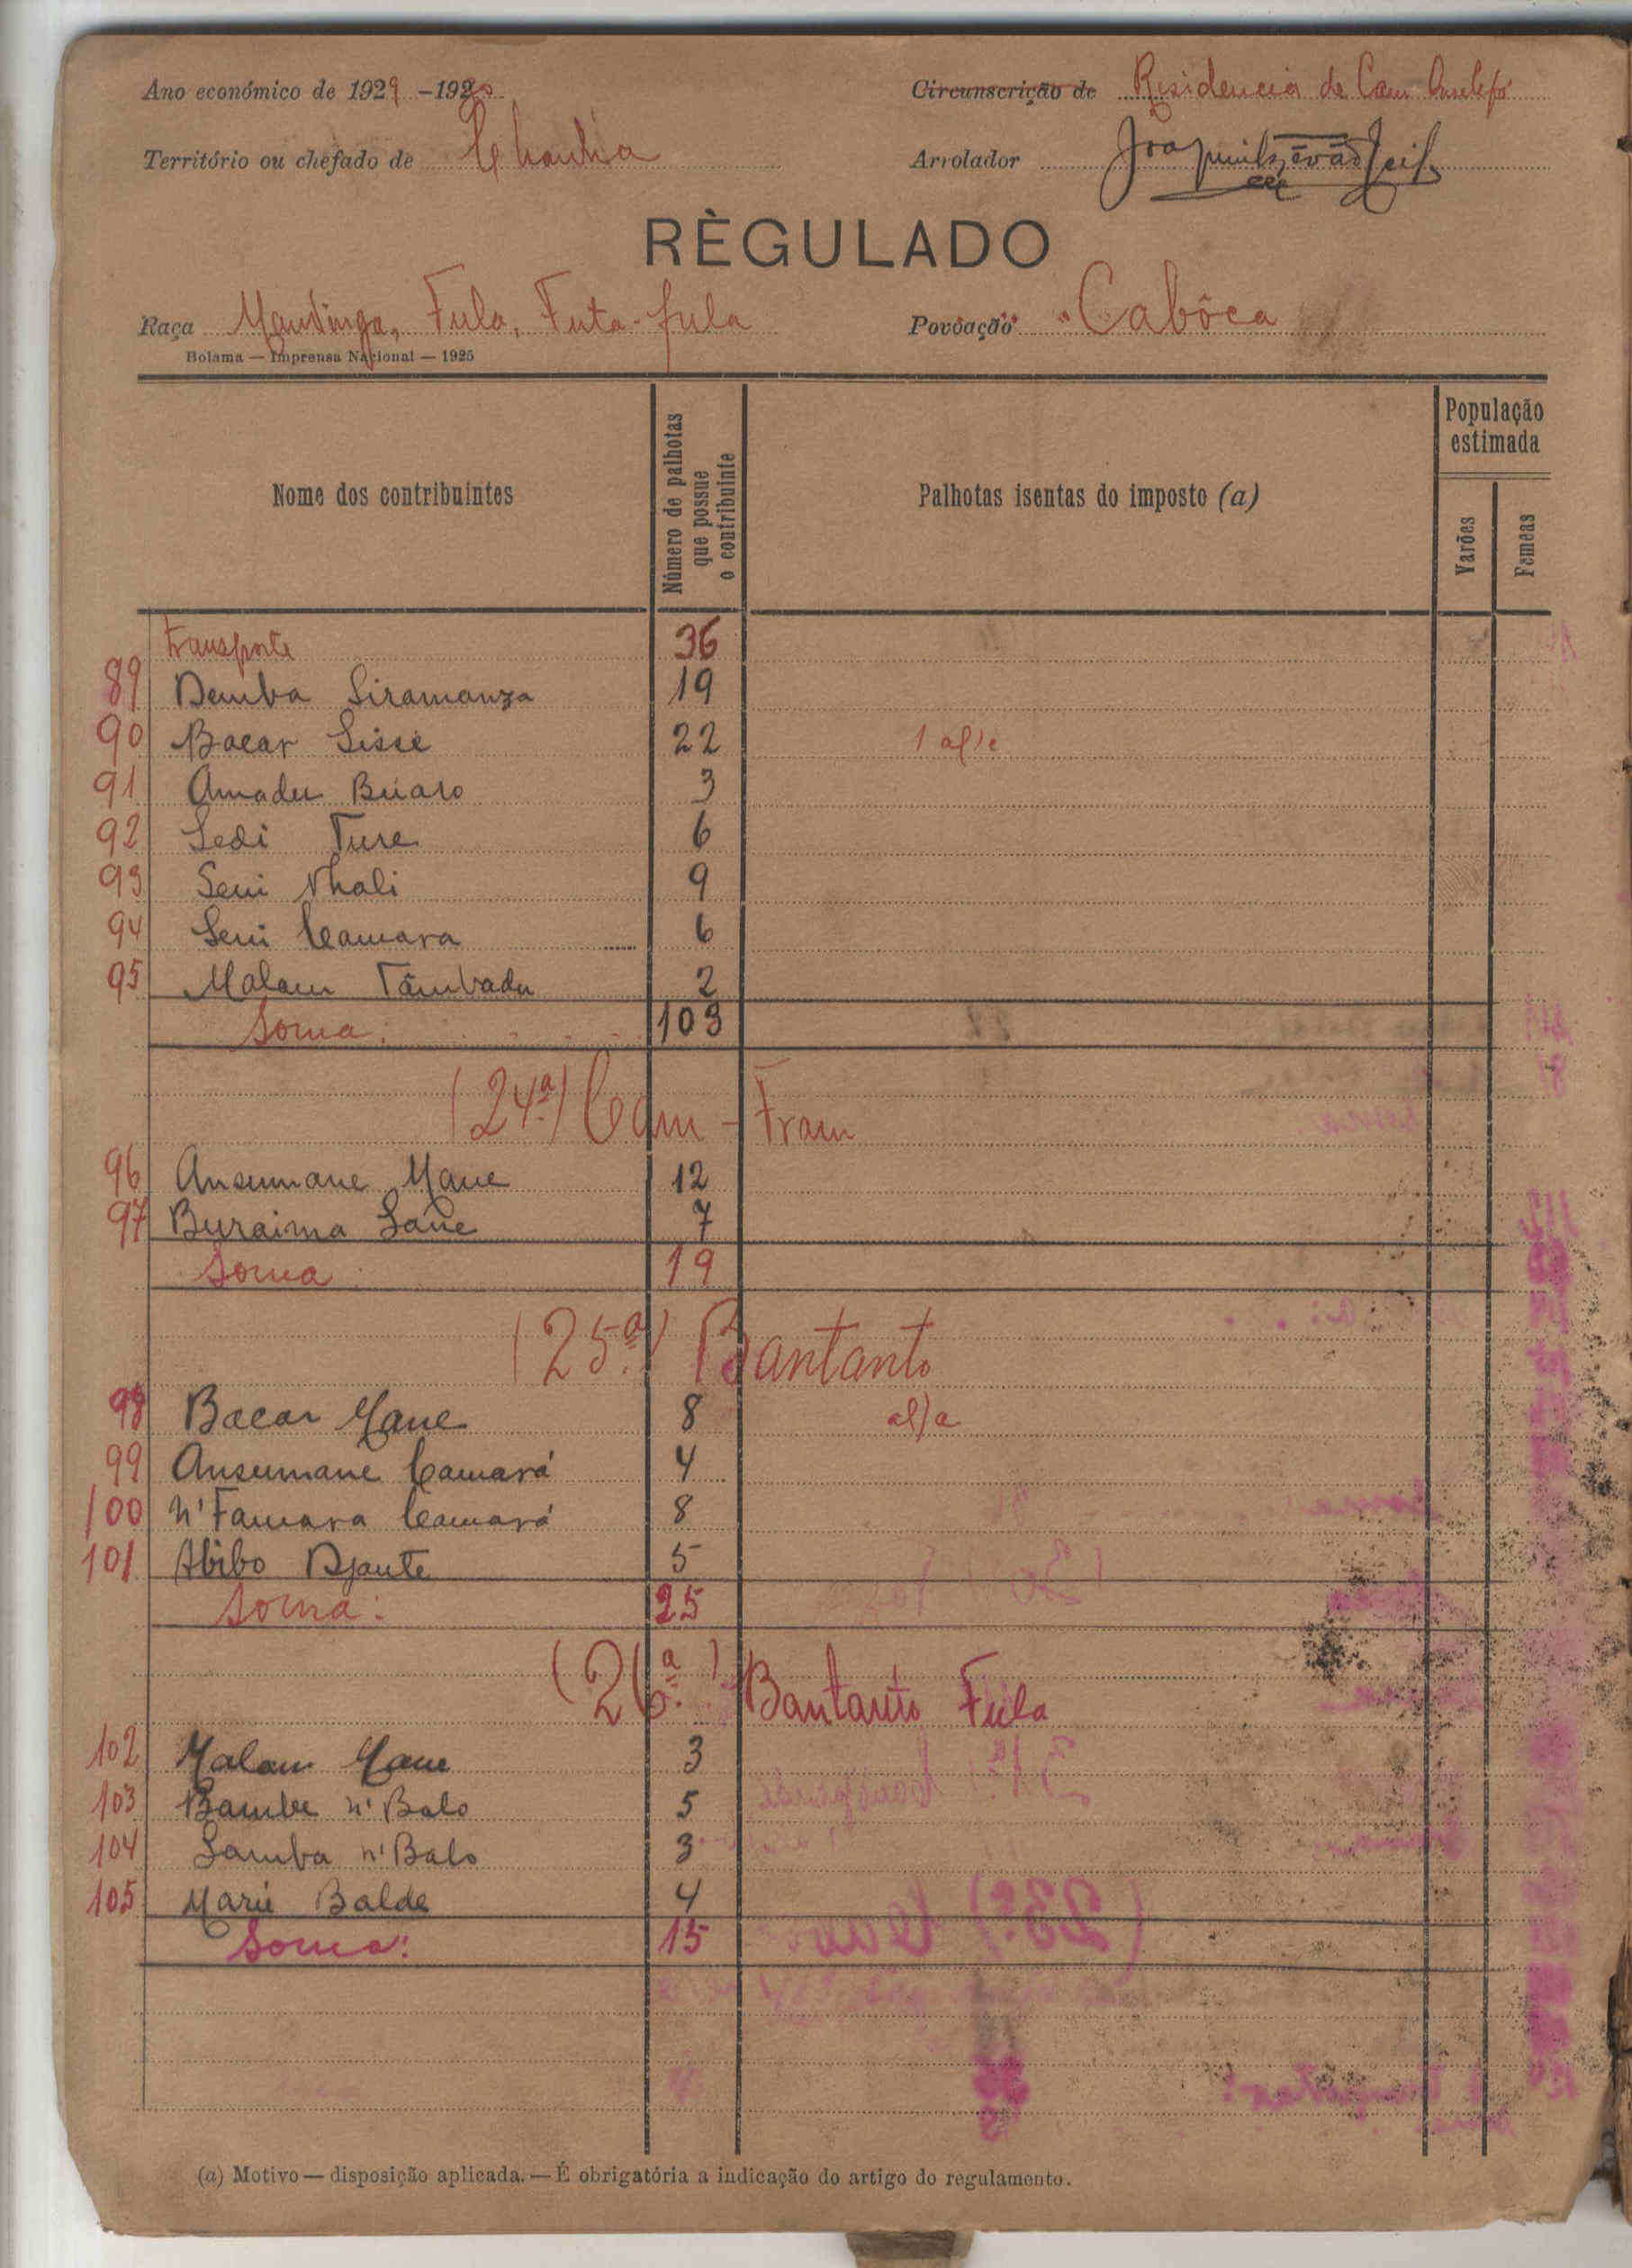 Ano económico de 1929 -1930
Circunscrição de Residencia de Cam
Território ou chefado de Chanha
Arrolador
RÈGULADO
Raça Mandinga, Fula, Futa-fula
Povoação Cabôca
Bolama — Imprensa Nacional — 1925
Nome dos contribuintes
Número de palhotas que possue o contribuinte
Palhotas isentas do imposto (a)
População estimada
Varões
Femeas
Transporte 36
89 Demba Siramanza 19
90 Bacar Sissé 22 1
91 Amadu Búaro 3
92 Sedi Ture 6
93 Seni Nhali 9
94 Seni Camara 6
95 Malam Tâmbadu 2
Soma: 103
(24ª) Cam - Fram
96 Ansumane Mane 12
97 Buraima Sane 7
Soma 19
(25ª) Bantanto
98 Bacar Mane 8
99 Ansumane Camará 4
100 N'Famara Camará 8
101 Abibo Djante 5
Soma: 25
(26ª) Bantanto Fula
102 Malam Mane 3
103 Bambe n'Balo 5
104 Samba n'Balo 3
105 Marié Balde 4
Soma: 15
(a) Motivo — disposição aplicada. — É obrigatória a indicação do artigo do regulamento.